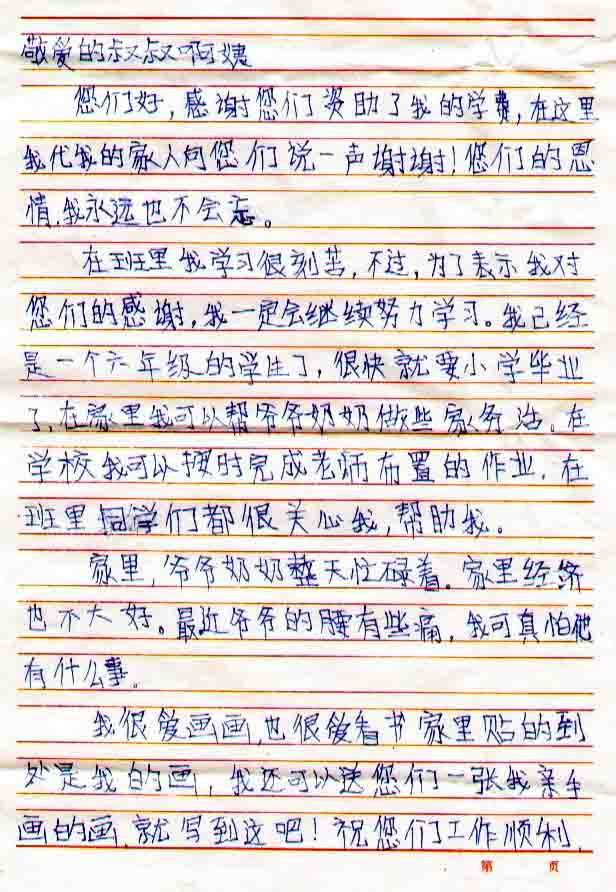 敬爱的叔叔啊姨
您们好，感谢您们资助了我的学费，在这里
我代我的家人向您们说一声谢谢！您们的恩
情，我永远也不会忘。
在班里我学习很刻苦，不过，为了表示我对
您们的感谢，我一定会继续努力学习。我已经
是一个六年级的学生了，很快就要小学毕业
了，在家里我可以帮爷爷奶奶做些家务活。在
学校我可以按时完成老师布置的作业，在
班里同学们都很关心我，帮助我。
家里，爷爷奶奶整天忙碌着。家里经济
也不大好。最近爷爷的腰有些痛，我可真怕他
有什么事。
我很爱画画，也很爱看书家里贴的到
处是我的画，我还可以送您们一张我亲手
画的画，就写到这吧！祝您们工作顺利，
第 页